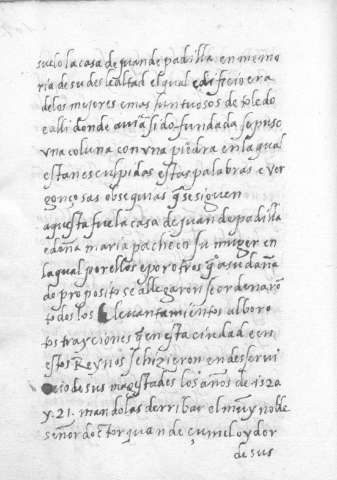 suelo la casa de juan de padilla en memo
ria de su desleal tad el qual edificio era
de los mejores e mas suntuosos de toledo
e alli donde auia sido fundada se puso
vna coluna con vna piedra en la qual
estan esculpidas estas palabras e ver
gonçosas obsequias q̄ se siguen
aquesta fue la casa de juan de padilla
e doña maria pacheco su muger en
la qual por ellos e por otros q̄ a su daña
do proposito se allegaron se ordenarō
todos los leuantamientos alboro
tos trayciones q̄ en esta ciudad e en
estos Reynos se hizieron en deserui
cio de sus magestades los años de 1520
y. 21. mandolas derribar el muy noble
señor doctor juan de çumel oydor
de sus